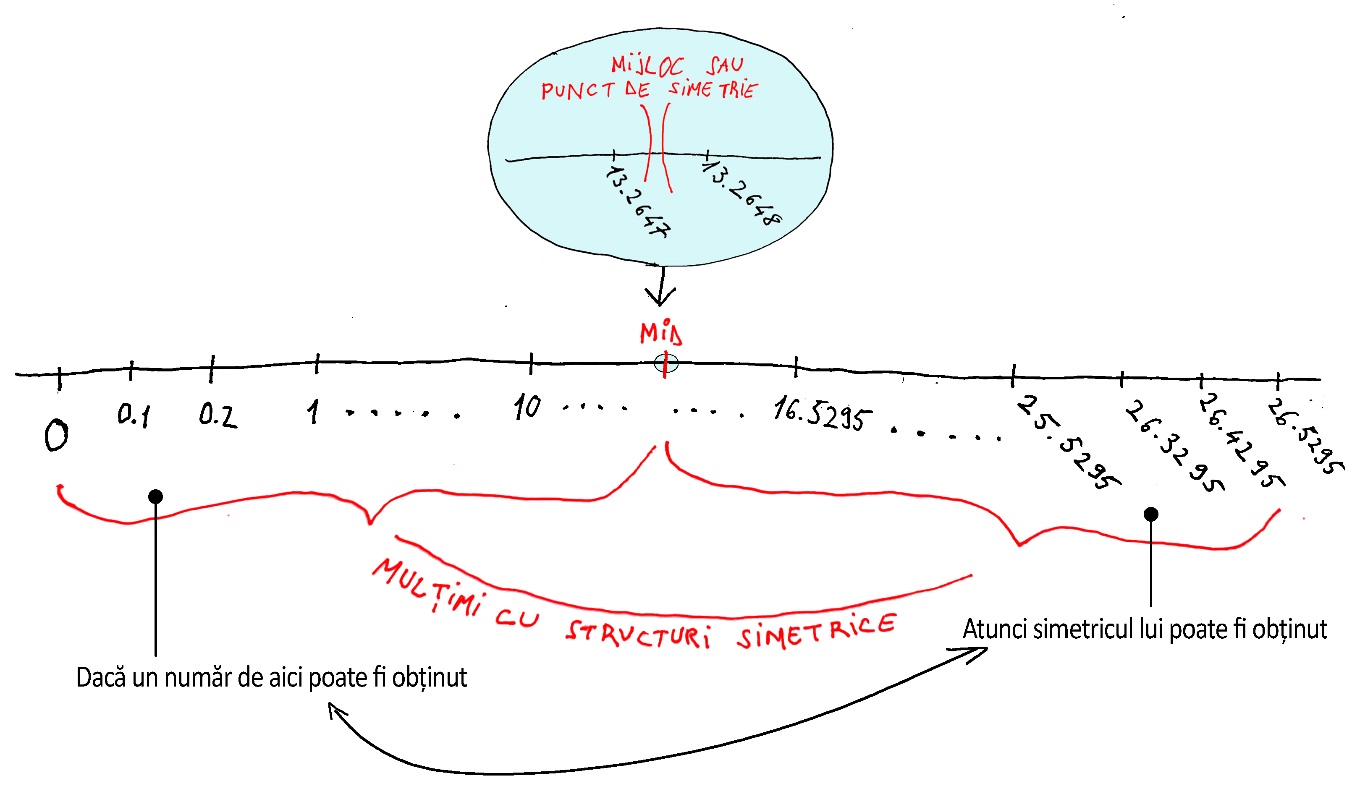 MIJLOC SAU
PUNCT DE SIMETRIE
13.2647 13.2648
MID
0 0.1 0.2 1 ...... 10 .... .... 16.5295 ..... 25.5295 26.3295 26.4295 26.5295
MULȚIMI CU STRUCTURI SIMETRICE
Atunci simetricul lui poate fi obținut
Dacă un număr de aici poate fi obținut